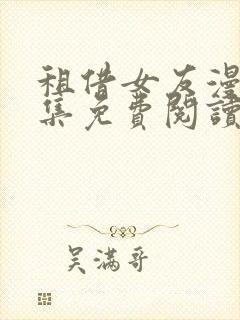 租借女友漫
集免費閱讀
吴满哥